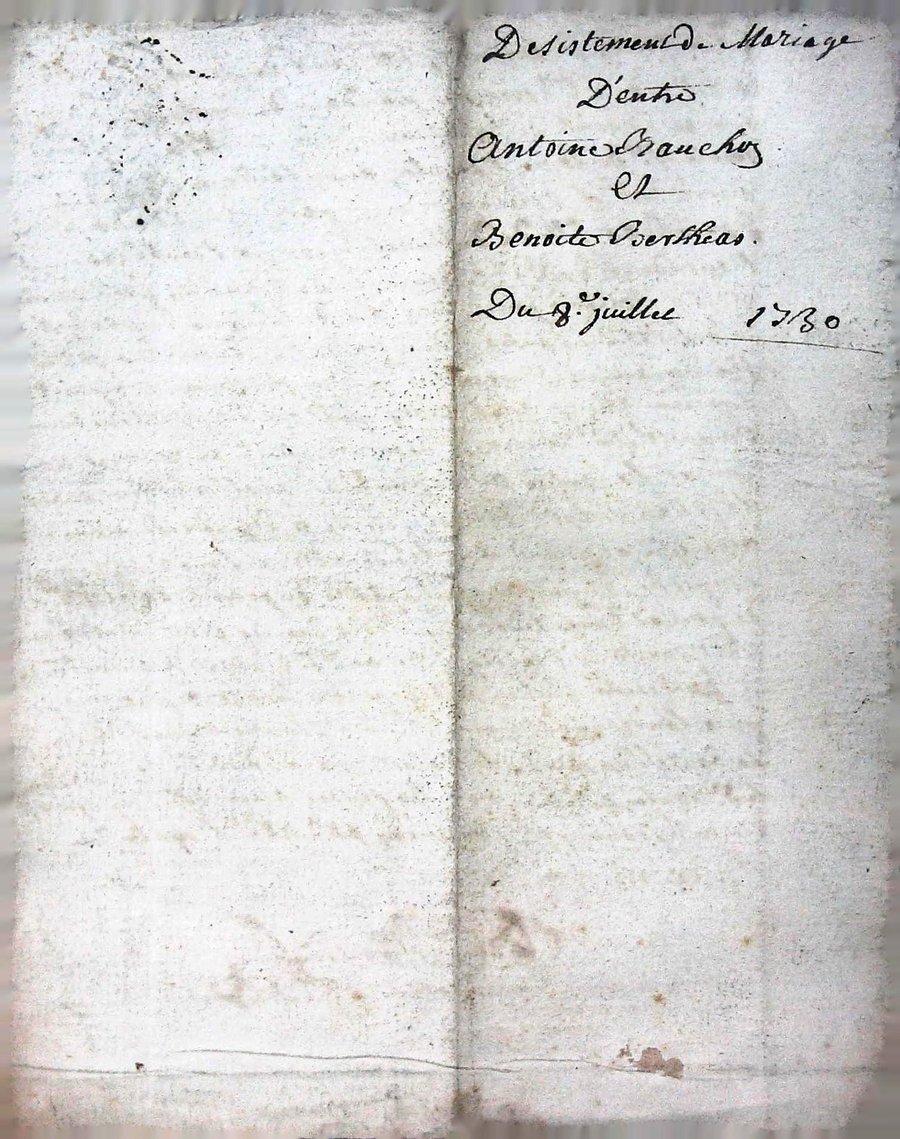 Desistement de Mariage
D'entre
Antoine
Et
Benoite Bertheas.
Du 8.e juillet 1730